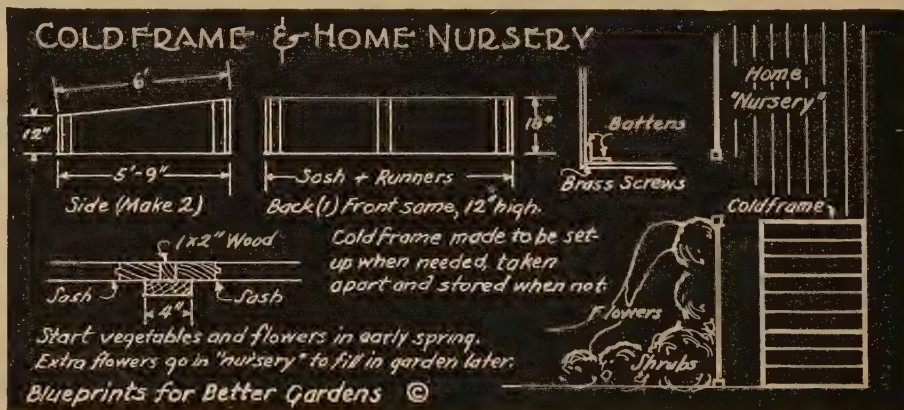 COLDFRAME & HOME NURSERY
6'
12"
5'-9"
Side (Make 2)
Sash + Runners
Back (1) Front same, 12" high.
18"
Battens
Brass Screws
Home
"Nursery"
Coldframe
1x2" Wood
Sash
Sash
4"
Coldframe made to be set-
up when needed, taken
apart and stored when not.
Flowers
Shrubs
Start vegetables and flowers in early spring.
Extra flowers go in "nursery" to fill in garden later.
Blueprints for Better Gardens ©